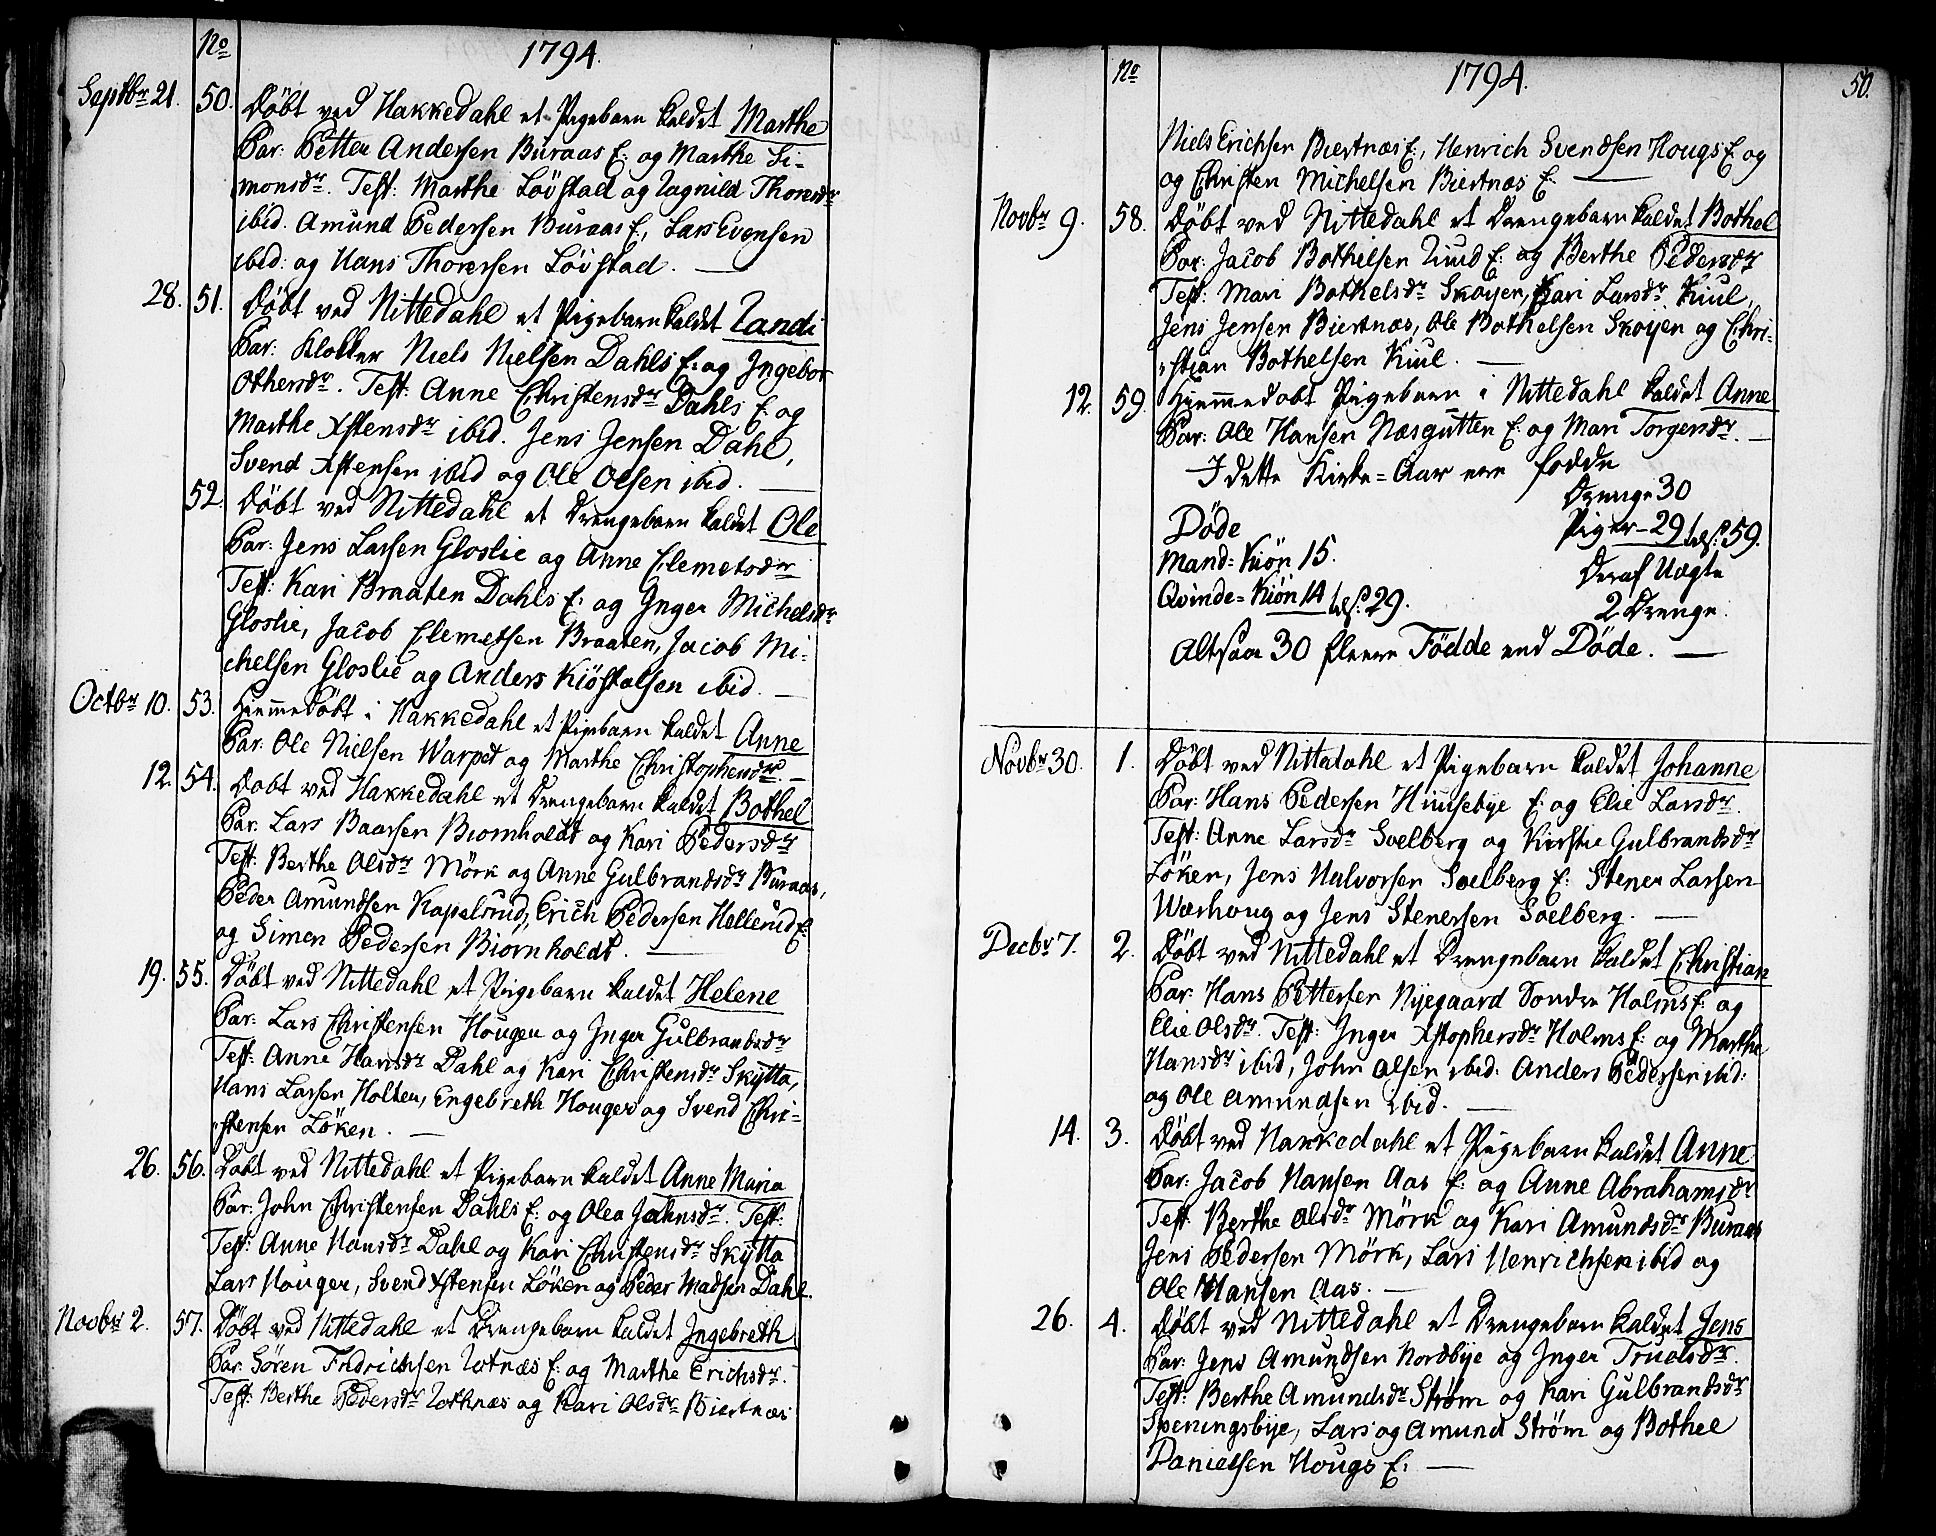 No
1794.
Septbr 21. 50. Döbt ved Hakkedahl et Pigebarn kaldet Marthe
Par: Petter Andersen Buraas E: og Marthe Si-
monsdr. Test: Marthe Lövstad og Ragnild Thoresdr
ibid. Amund Pedersen Buraas E:, Lars Evensen
ibid: og Hans Thoresen Lövstad. —
28. 51. Döbt ved Nittedahl et Pigebarn kaldet Randi
Par: Klokker Niels Nielsen Dahls E: og Ingebor
Othersdr. Test: Anne Christensdr Dahls E: og
Marthe Xstensdr ibid. Jens Jensen Dahl,
Svend Xstensen ibid og Ole Olsen ibid. —
52. Döbt ved Nittedahl et Drengebarn kaldet Ole
Par: Jens Larsen Gloslie og Anne Clemetsdr
Test: Kari Braaten Dahls E: og Inger Michelsdr
Gloslie, Jacob Clemetsen Braaten, Jacob Mi-
chelsen Gloslie og Anders Kiöstelsen ibid. —
Octbr 10. 53. Hiemmedöbt i Hakkedahl et Pigebarn kaldet Anne
Par: Ole Nielsen Warpet og Marthe Christophersdr. —
12. 54. Döbt ved Hakkedahl et Drengebarn kaldet Bothel
Par: Lars Baarsen Biornholdt og Kari Pedersdr
Test: Berthe Olsdr Mörk og Anne Gulbrandsdr Buraas,
Peder Amundsen Kapelsrud, Erich Pedersen Hellerud E:
og Simen Pedersen Biornholdt. —
19. 55. Döbt ved Nittedahl et Pigebarn kaldet Helene
Par: Lars Christensen Hougen og Inger Gulbrandsdr
Test: Anne Hansdr Dahl og Kari Christensdr Skÿtta,
Hans Larsen Holter, Engebreth Houger og Svend Chri-
stensen Löken. —
26. 56. Döbt ved Nittedahl et Pigebarn kaldet Anne Maria
Par: John Christensen Dahls E: og Olea Johnsdr. Test:
Test: Anne Hansdr Dahl og Kari Christensdr Skÿtta
Lars Houger, Svend Xstensen Löken og Peder Madsen Dahl.
Novbr 2. 57. Döbt ved Nittedahl et Drengebarn kaldet Ingebreth
Par: Sören Fridrichsen Rotnæs E: og Marthe Erichsdr.
Test: Berthe Pedersdr Rotknæs og Kari Olsdr Biertnæs
No
1794.
50.
Niels Erichsen Biertnæs E:, Henrich Svendsen Hougs E: og
og Christen Michelsen Biertnæs E: —
Novbr 9. 58. Döbt ved Nittedahl et Drengebarn kaldet Bothel
Par: Jacob Bothelsen Ruud E: og Berthe Pedersdr
Test: Mari Bothelsdr Skøyen, Kari Larsdr Kiul,
Jens Jensen Biertnæs, Ole Bothelsen Skoÿen og Chri-
stian Bothelsen Kiul. —
12. 59. Hiemmedobt Pigebarn i Nittedahl kaldet Anne
Par: Ole Hansen Næsgutten E: og Mari Torgersdr. —
I dette Kirke=Aar ere fodde
Drenge 30
Piger — 29 tils: 59.
Döde
Mand=Kiön 15.
Deraf Uægte
Qvinde=Kiön 14 tils: 29.
2 Drenge.
Altsaa 30 fleere Födde end Döde. —
Novbr 30. 1. Döbt ved Nittedahl et Pigebarn kaldet Johanne
Par: Hans Pedersen Hunsebye E: og Elie Larsdr.
Test: Anne Larsdr Soelberg og Kirstie Gulbrandsdr
Löken, Jens Halvorsen Soelberg E: Stener Larsen
Warhoug og Jens Stenersen Soelberg. —
Decbr 7. 2. Döbt ved Nittedahl et Drengebarn kaldet Christian
Par: Hans Pettersen Nyegaard Sondre Holms E: og
Elie Olsdr. Test: Inger Xstophersdr Holms E: og Marthe
Hansdr ibid, John Olsen ibid: Anders Pedersen ibid:
og Ole Amundsen ibid. —
14. 3. Döbt ved Hakkedahl et Pigebarn kaldet Anne
Par: Jacob Hansen Aas E: og Anne Abrahamsdr
Test: Berthe Olsdr Mörk og Kari Amundsdr Buraas
Jens Pedersen Mörk, Lars Henrichsen ibid og
Ole Hansen Aas. —
26. 4. Döbt ved Nittedahl et Drengebarn kaldet Jens
Par: Jens Amundsen Nordbye og Inger Truelsdr.
Test: Berthe Amundsdr Strøm og Kari Gulbrandsdr
Speningsbye, Lars og Amund Strøm og Bothel
Danielsen Hougs E: —